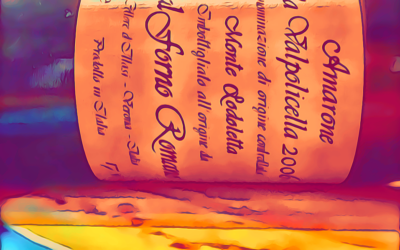 Amarone
la Valpolicella 2006
nominazione di origine controllata
Monte Lodoletta
Imbottigliato all'origine da
Forno Romano
d'Illasi - Verona - Italia
Prodotto in Italia